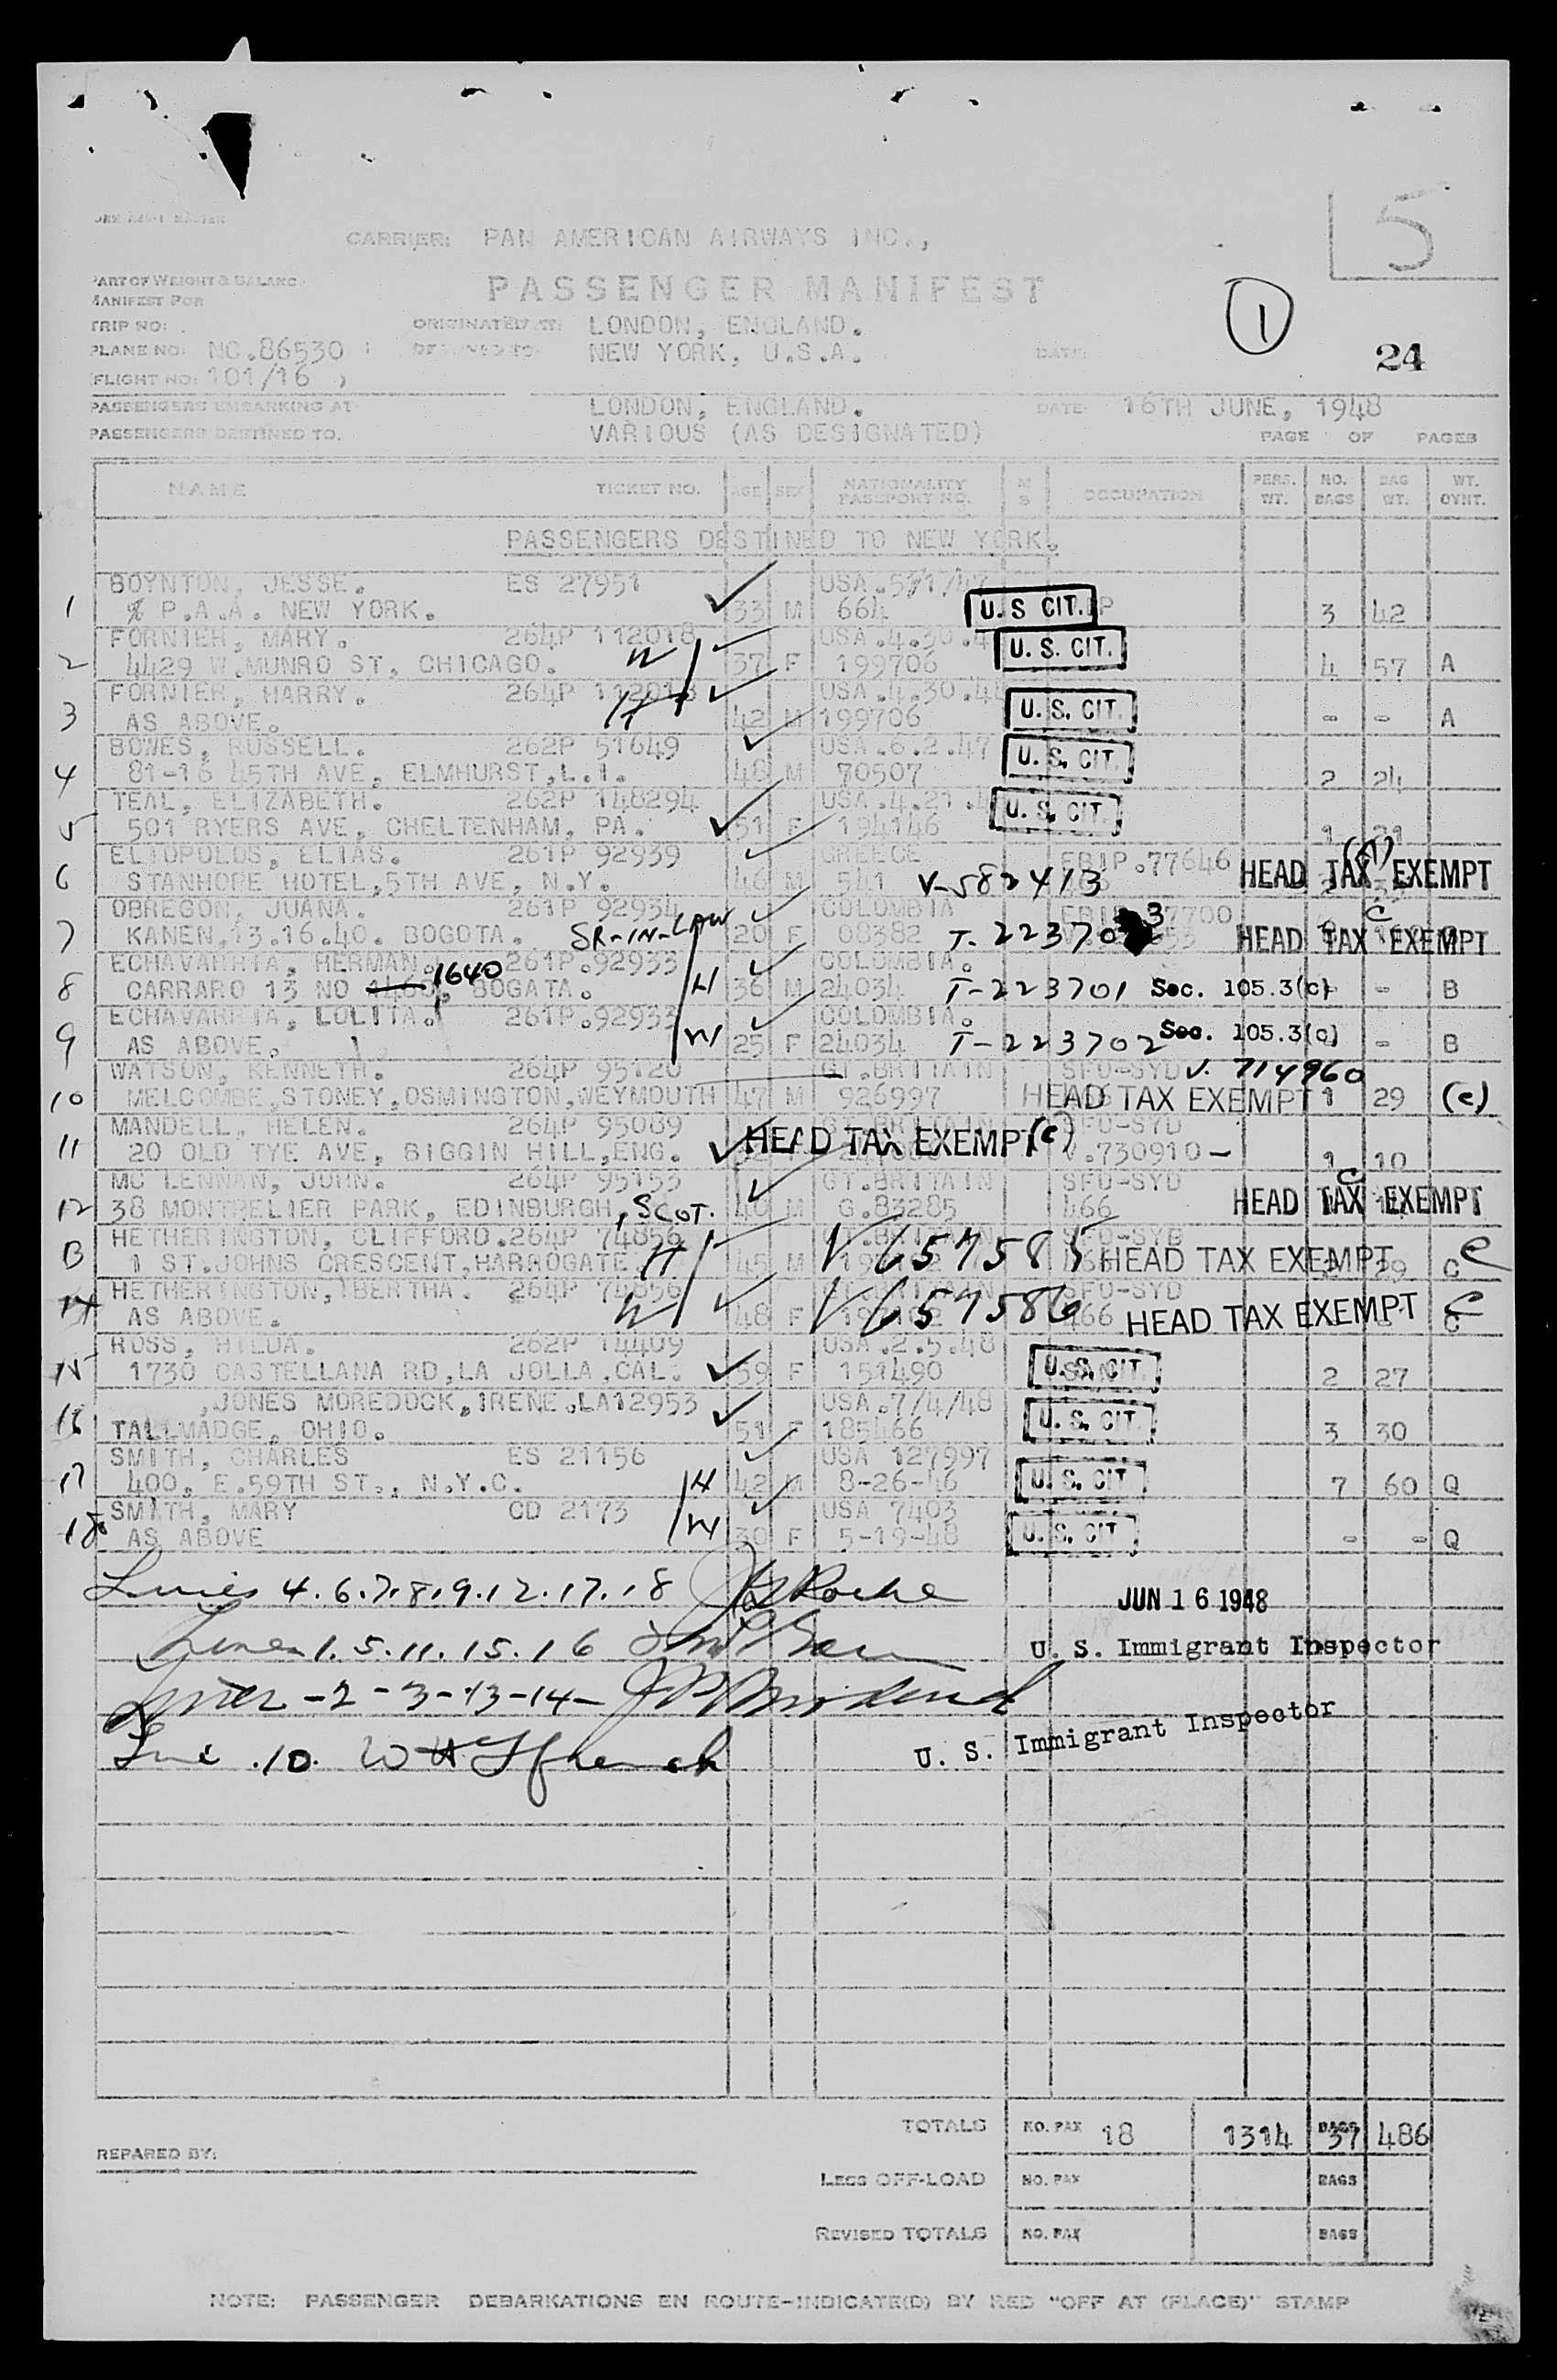 5
CARRIER: PAN AMERICAN AIRWAYS INC.,
PART OF WEIGHT & BALANC
MANIFEST FOR
PASSENGER MANIFEST
1
TRIP NO:
ORIGINATED AT: LONDON, ENGLAND.
PLANE NO: NC.86530
DESTINED TO: NEW YORK, U.S.A.
DATE:
24
(FLIGHT NO: 101/16 )
PASSENGERS EMBARKING AT: LONDON, ENGLAND. DATE: 16TH JUNE, 1948
PASSENGERS DESTINED TO. VARIOUS (AS DESIGNATED) PAGE OF PAGES
NAME TICKET NO. AGE SEX NATIONALITY PASSPORT NO. M S OCCUPATION PERS. WT. NO. BAGS BAG WT. WT. CYNT.
PASSENGERS DESTINED TO NEW YORK.
BOYNTON, JESSE. ES 27951 USA.
1 % P.A.A. NEW YORK. 33 M 664 U.S CIT. 3 42
FORNIER, MARY. 264P 112018 USA.4.30.4
2 4429 W.MUNRO ST, CHICAGO. W 37 F 199706 U.S. CIT. 4 57 A
FORNIER, HARRY. 264P 112018 USA.4.30.4
3 AS ABOVE. H 42 M 199706 U.S. CIT. - - A
BOWES, RUSSELL. 262P 51649 USA.6.2.47
4 81-16 45TH AVE, ELMHURST,L.I. 48 M 70507 U.S. CIT. 2 24
TEAL, ELIZABETH. 262P 148294 USA.4.21.4
5 501 RYERS AVE, CHELTENHAM, PA. 51 F 194146 U.S. CIT. 1 21
ELIOPOLOS, ELIAS. 261P 92939 GREECE EBIP.77646
6 STANHOPE HOTEL,5TH AVE, N.Y. 46 M 541 V-582413 HEAD TAX EXEMPT
OBREGON, JUANA. 261P 92934 COLOMBIA 77700 C
7 KANEN.13.16.40. BOGOTA. SR-IN-LAW 20 F 08382 T-223703 HEAD TAX EXEMPT
ECHAVARRIA, HERMAN. 261P.92933 COLOMBIA.
8 CARRARO 13 NO 1460, 1640 BOGATA. H 36 M 24034 T-223701 Sec. 105.3(c) - B
ECHAVARRIA, LOLITA. 261P.92933 COLOMBIA.
9 AS ABOVE. W 25 F 24034 T-223702 Sec. 105.3(c) - B
WATSON, KENNETH. 264P 95120 GT.BRITAIN SFO-SYD V. 714960
10 MELCOMBE,STONEY,OSMINGTON,WEYMOUTH 47 M 926997 HEAD TAX EXEMPT 1 29 (c)
MANDELL, HELEN. 264P 95089 SFO-SYD
11 20 OLD TYE AVE, BIGGIN HILL,ENG. HEAD TAX EXEMPT (c) V.730910- 1 10
MC LENNAN, JOHN. 264P 95153 GT.BRITAIN SFO-SYD C
12 38 MONTPELIER PARK, EDINBURGH, SCOT. 40 M G.83285 466 HEAD TAX EXEMPT
HETHERINGTON, CLIFFORD. 264P 74856 GT.BRITAIN SFO-SYD
13 1 ST.JOHNS CRESCENT,HARROGATE. H 45 M V 657585 HEAD TAX EXEMPT 29 C C
HETHERINGTON, BERTHA. 264P 74856 SFO-SYD
14 AS ABOVE. W 48 F V 657586 466 HEAD TAX EXEMPT C
ROSS, HILDA. 262P 14409 USA.2.5.48
15 1730 CASTELLANA RD,LA JOLLA,CAL. 59 F 151490 U.S. CIT 2 27
,JONES MOREDOCK,IRENE.LA12953 USA.7/4/48
16 TALLMADGE, OHIO. 51 F 185466 U.S. CIT. 3 30
SMITH, CHARLES ES 21156 USA 127997
17 400, E.59TH ST., N.Y.C. H 42 M 8-26-46 U.S. CIT 7 60 Q
SMITH, MARY CD 2173 USA 7403
18 AS ABOVE W 30 F 5-19-48 U.S. CIT - - Q
Lines 4.6.7.8.9.12.17.18 Roche JUN 16 1948
Lines 1.5.11.15.16 U. S. Immigrant Inspector
Lines -2-3-13-14-
Line .10. U. S. Immigrant Inspector
TOTALS NO. PAX 18 1314 BAGS 37 486
REPARED BY:
LESS OFF-LOAD NO. PAX BAGS
REVISED TOTALS NO. PAX BAGS
NOTE: PASSENGER DEBARKATIONS EN ROUTE-INDICATE(D) BY RED "OFF AT (PLACE)" STAMP